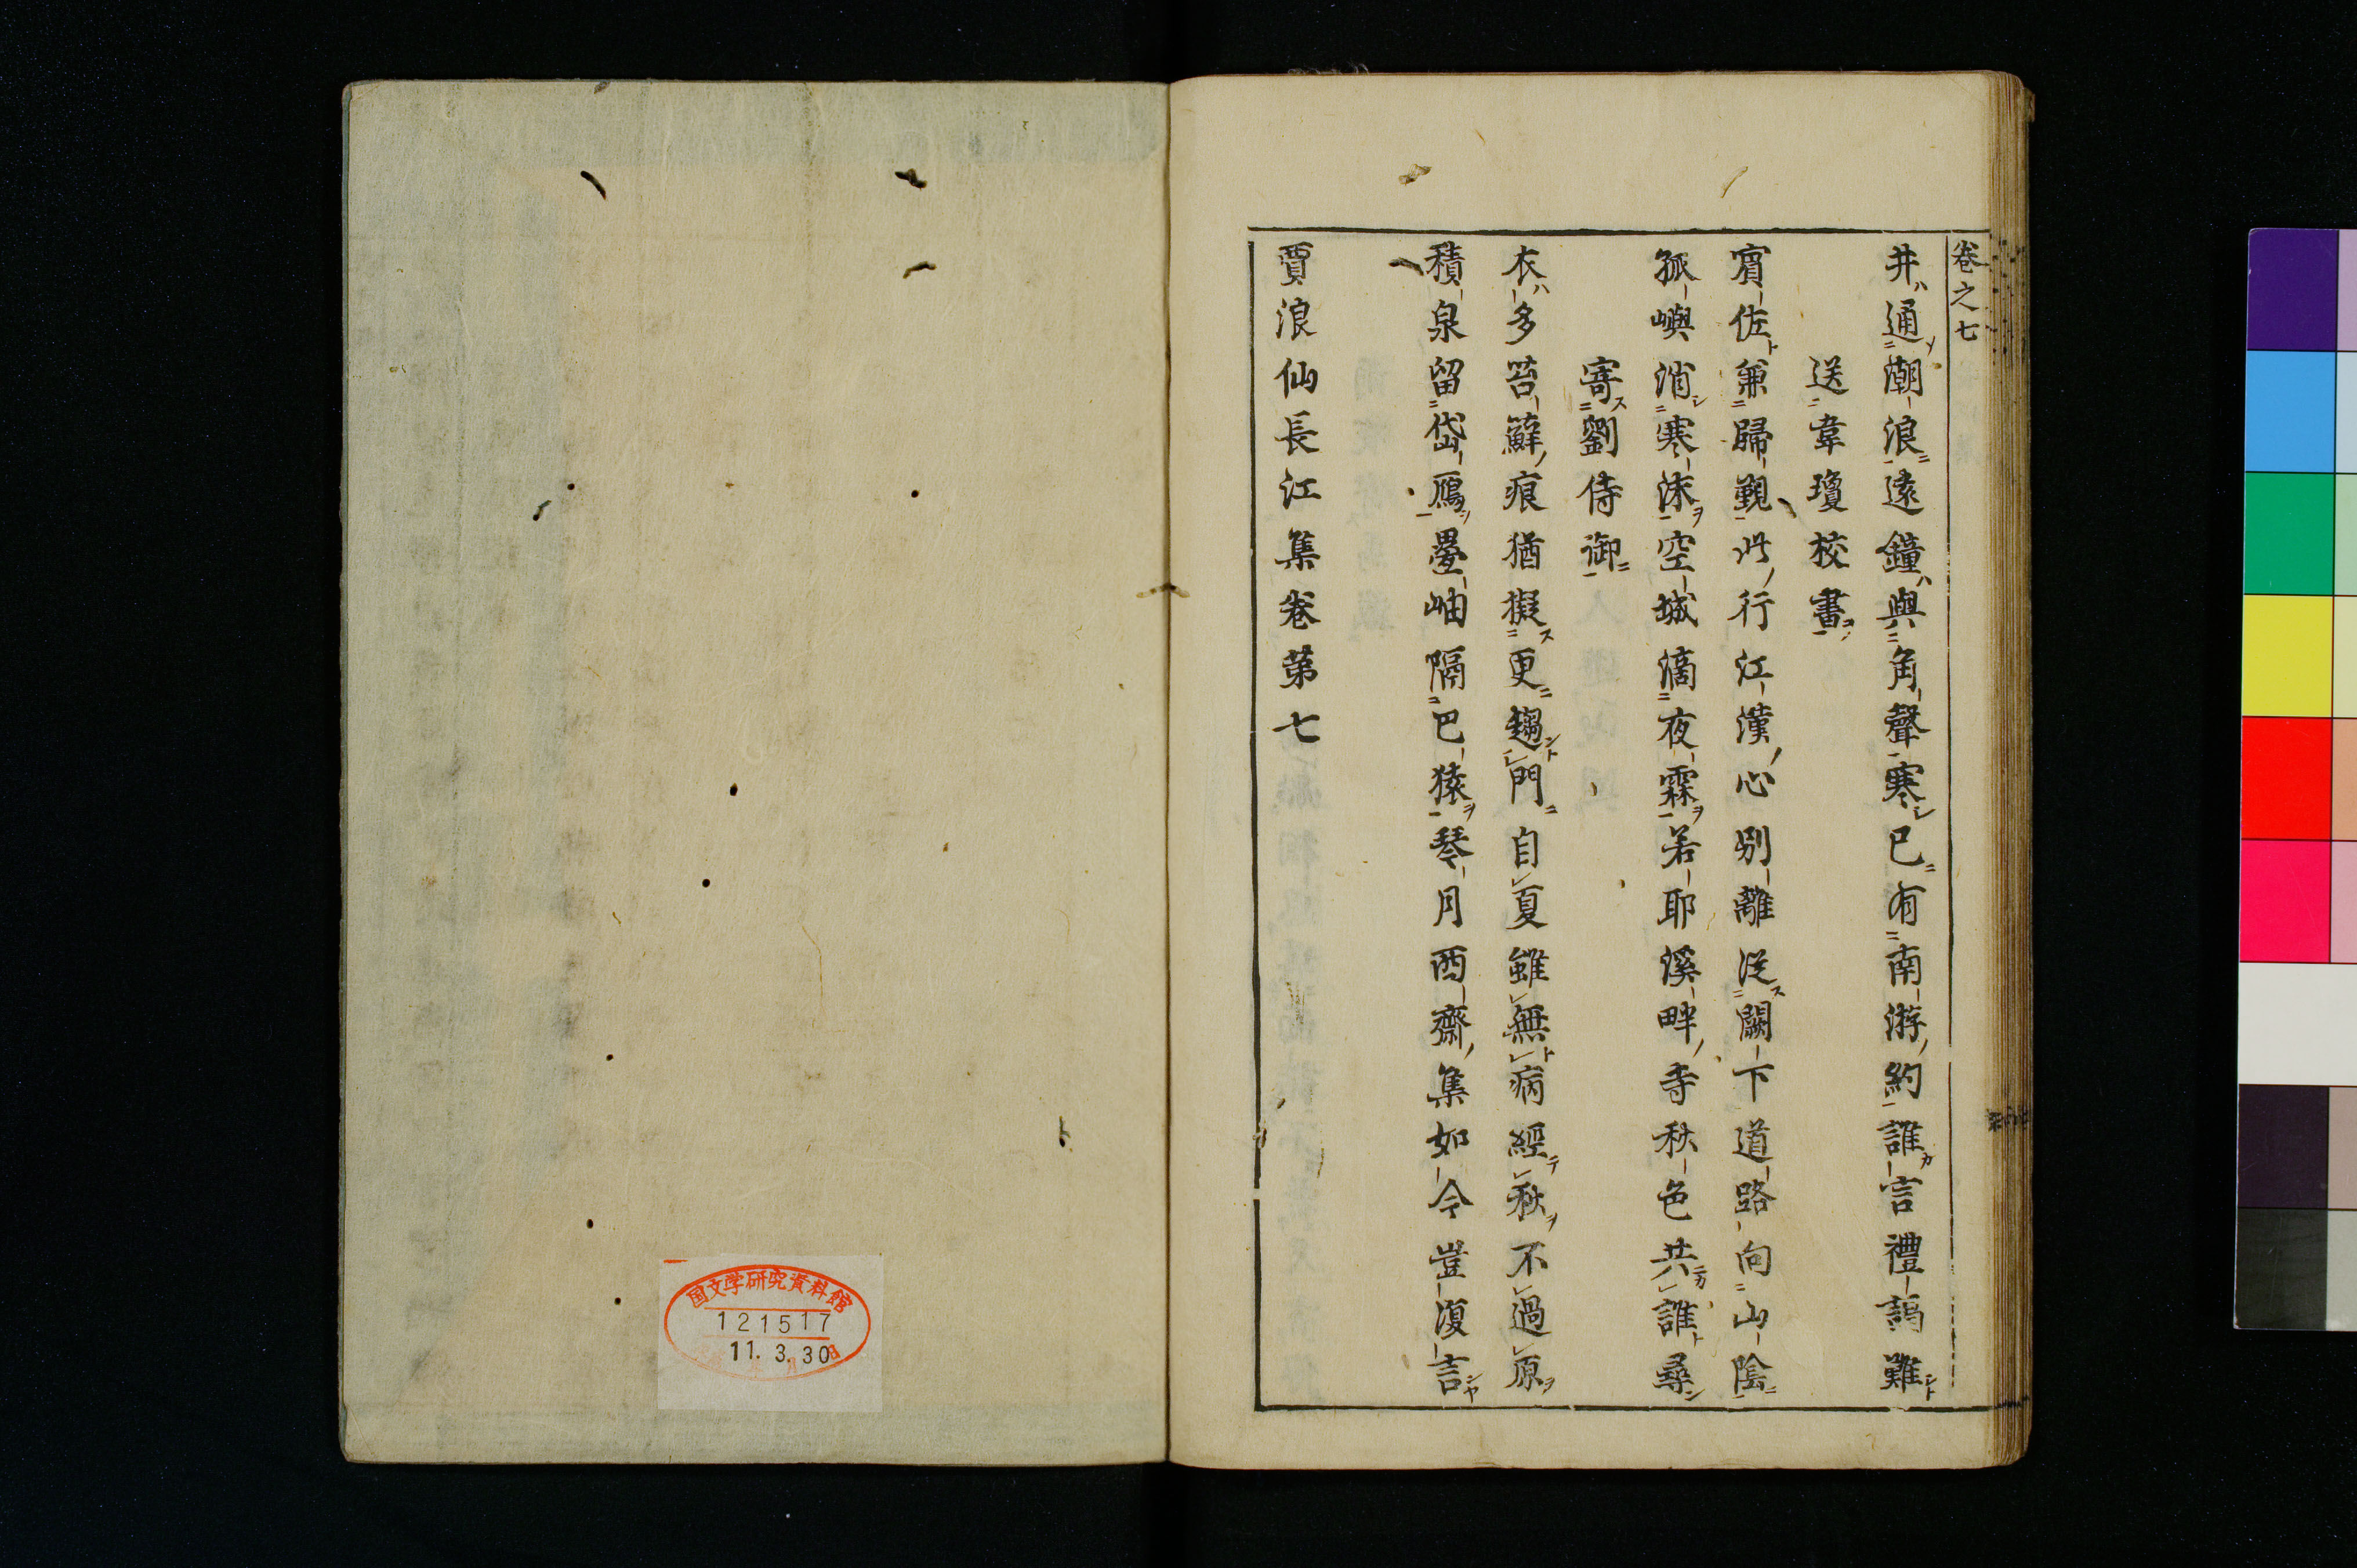 卷之七
井通潮浪遠鐘與角聲寒已有南游約誰言禮謁難
送韋瓊校書
賓佐兼歸覲此行江漢心別離從闕下道路向山陰
孤嶼消寒沫空城滴夜霖若耶溪畔寺秋色共誰尋
寄劉侍御
衣多苔蘚痕猶擬更趨門自夏雖無病經秋不過原
積泉留岱鳫疊岫隔巴猿琴月西齋集如今豈復言
賈浪仙長江集卷第七
国文学研究資料館
121517
11.3.30